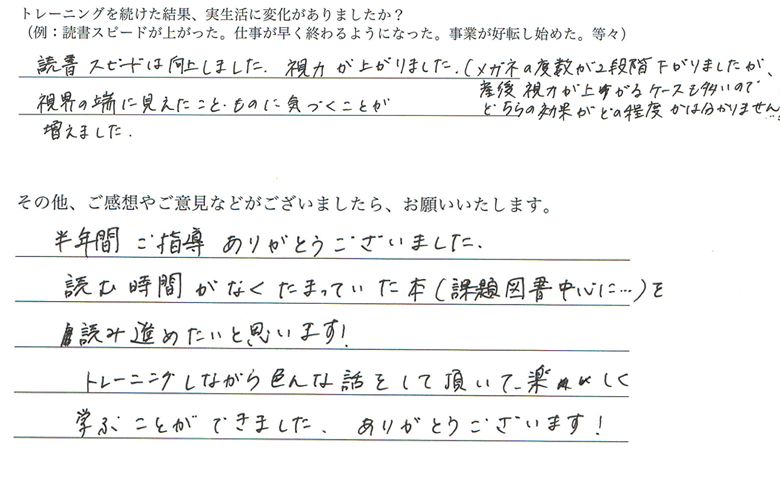 トレーニングを続けた結果、実生活に変化がありましたか？
（例：読書スピードが上がった。仕事が早く終わるようになった。事業が好転し始めた。等々）
読書スピードは向上しました。視力が上がりました。（メガネの度数が2段階下がりましたが、
産後視力が上がるケースも多いので
どちらの効果がどの程度かは分かりません…）
視界の端に見えたこと・ものに気づくことが
増えました。
その他、ご感想やご意見などがございましたら、お願いいたします。
半年間ご指導ありがとうございました。
読む時間がなくたまっていた本（課題図書中心に…）を
読み進めたいと思います！
トレーニングしながら色んな話をして頂いて、楽しく
学ぶことができました。ありがとうございます！